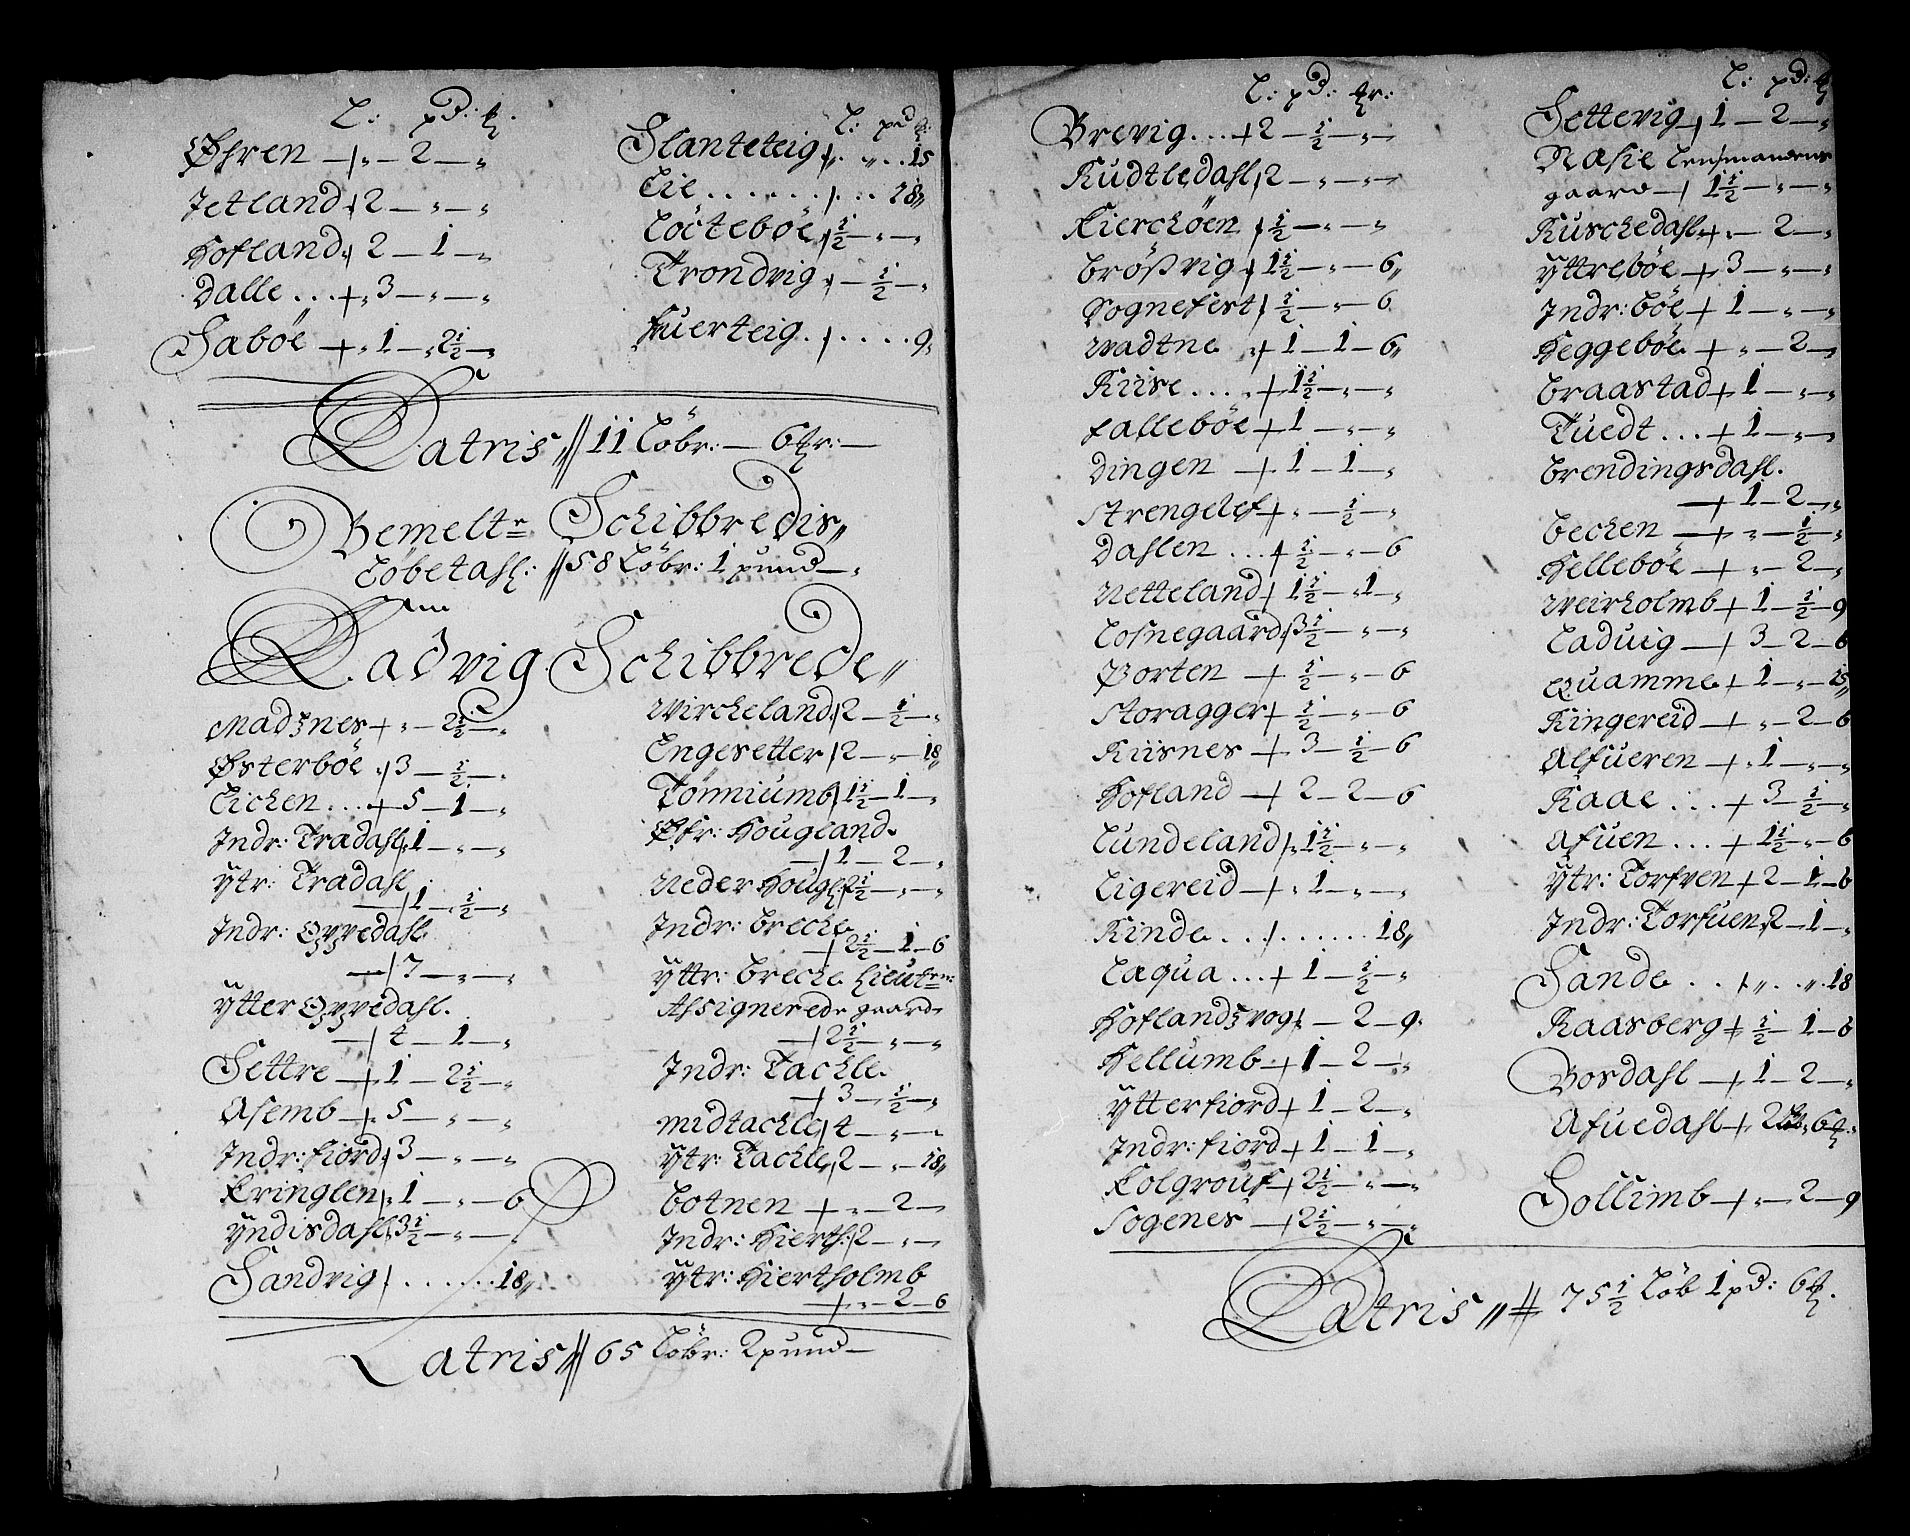 L: pd: ꝶ.
Øhren –+„– 2 –„
Jetland + 2 – „ – „
Hofland + 2 – 1 – „
Dalle ... + „ 3 – „ – „
Saböe –+„ 1 – 2½ – „
L: pd ꝶ:
Slanteteig +„. „ .. 15
Lie . . . . . . . /. .. 18„
Löcteböe + ½ – „ – „
Trondvig + – ½ – „
Huerteig . /. . . . . 9„
Latris // 11 Löbr: – 6 ꝶr: –
Bemeltr Schibbredis„
Löbetahl: // 58 Löbr: 1 pund – „
Ladvig Schibbrede„
Madznes + „ – 2½ – „
Østerböe + 3 – ½ – „
Eichen ... + 5 – 1 – „
Indr: Tradahl + 1 – „ – „
Ytr: Tradahl
–+ 1 – ½ – „
Indr: Oppedahl
–+ 7 – „ – „
Ytter Oppedahl.
–+ 4 – 1 – „
Settre –+ 1 – 2½ – „
Asemb –+ 5 – „ – „
Indr: fiord + 3 – „ – „
Kringlen + 1 – „ – 6
Yndisdahl + 3½ – „ – „
Sandvig /. . . . . . . 18„
Wircheland + 2 – ½ – „
Engesetter + 2 – „ – 18„
Tönniumb + 1½ – 1 – „
Øfr: Hougland.
–+ 1 – 2 – „
Neder Hougl + 2½ – „ – „
Indr: Breche
–+ 2½ – 1 – 6
Yttr: Breche Lieutn:
Assignerede gaard
–+ 2½ – „ – „
Indr: Tachle.
–+ 3 – ½ – „
Midtachle + 4 – „ – „
Ytr: Tachle + 2 – „ – 18„
Botnen –+ „ – 2 – „
Indr: Hierth: + 2 – „ – „
Ytr: Hiertholmb
–+ „ – 2 – 6
Latris // 65 Löbr: 2 pund –
L: pd: ꝶr:
Brevig ... + 2 – ½ – „ –
Kudtledahl + 2 – „ – „
Kierchöen + ½ – „ – „
Brößvig + 1½ – „ – 6„
Sognefest + ½ – „ – 6
Wadtne „+ 1 – 1 – 6„
Riise .... + 1½ – „ – „
Falleböe + 1 – „ – „
Dingen –+ 1 – 1 – „
Strengelef + „ – ½ – „
Dahlen ... + ½ – „ – 6
Netteland + 1½ – 1 – „
Losnegaard + 3½ – „ – „
Porten –+ ½ – „ – 6
Storagger + ½ – „ – 6
Riisnes –+ 3 – ½ – 6
Hofland –+ 2 – 2 – 6
Lundeland + 1½ – „ – „
Ligereid –+ „ 1 – „ – „
Rinde . . . /. . . . . . . 18„
Læqua ... + 1 – ½ – „
Hoflandzvog + – 2 – 9.
Hellumb + 1 – 2 – „
Ytterfiord + 1 – 2 – „
Indr: fiord + 1 – 1 – „
Kolgrouf + 2½ – „ – „
Sogenes –+ 2½ – „ – „
L: pd: ꝶ
Settevig + 1 – 2 – „
Næsie Lensmandens
gaard –+ 1½ – „ – „
Kuschedahl + – 2 – „
Yttreböe –+ 3 – „ – „
Indr: böe + 1 – „ – „
Heggeböe –+ „ – 2 – „
Braastad + 1 – „ – „
Tuedt ... + 1 – „ – „
Brendingsdahl.
–+ 1 – 2 – „
Bechen –+ „ – ½ – „
Helleböe –+ „ – 2 – „
Weirholmb + 1 – ½ – 9
Laduig –+ 3 – 2 – 6
Quamme + 1 – „ – 15„
Ringereid –+ „ – 2 – 6
Alfueren –+ „ 1 – „ – „
Kaae ... + 3 – ½ – „
Afuen ... + 1½ – „ – 6
Ytr: Torfven + 2 – 1 – 6
Indr: Torfuen + 2 – 1 – „
Sande . . /. „ . „ . 18
Raasberg + ½ – 1 – 6
Bosdahl –+ 1 – 2 – „
Afuedahl + 2 „ 6 ꝶ:
Sollimb –+ „ – 2 – 9
Latris „# 75½ Löb 1 pd: 6 ꝶ.